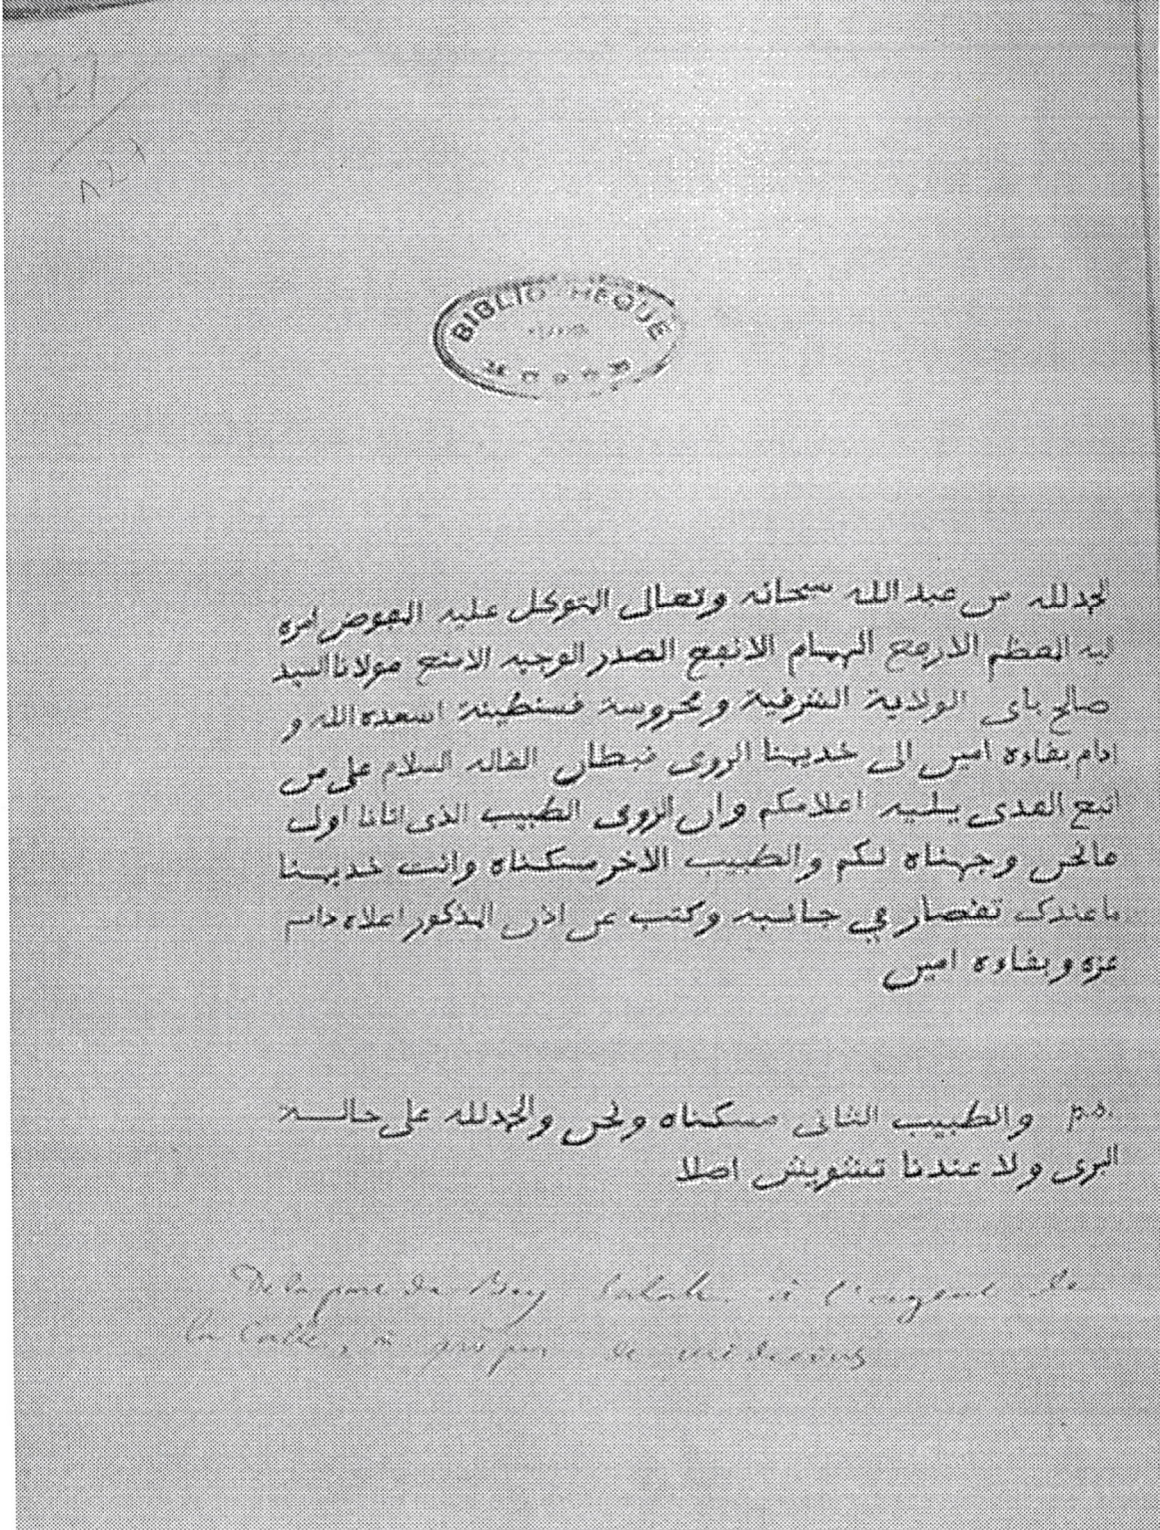 127
127
BIBLIOTHEQUE
الحمد لله من عبد الله سبحانه وتعالى المتوكل عليه المفوض امره
ليه المعظم الارفع الهمام الانفع الصدر الوجيه الامنع مولانا السيد
صالح باى الولاية الشرقية ومحروسة قسنطينة اسعده الله و
ادام بقاءه امين الى خديمنا الروى قبطان القاله السلام على من
اتبع الهدى يليه اعلامكم وان الروى الطبيب الذى اتانا اول
مانحن وجهناه لكم والطبيب الاخر مسكناه وانت خديمنا
ما عندك تقصار في جانبه وكتب عن اذن المذكور اعلاه دام
عزه وبقاءه امين
p.s. والطبيب الثانى مسكناه ونحن والحمد لله على حالة
البرى ولا عندنا تشويش اصلا
De la part du Bey Salah à l'agent de
la Calle, à propos de médecins